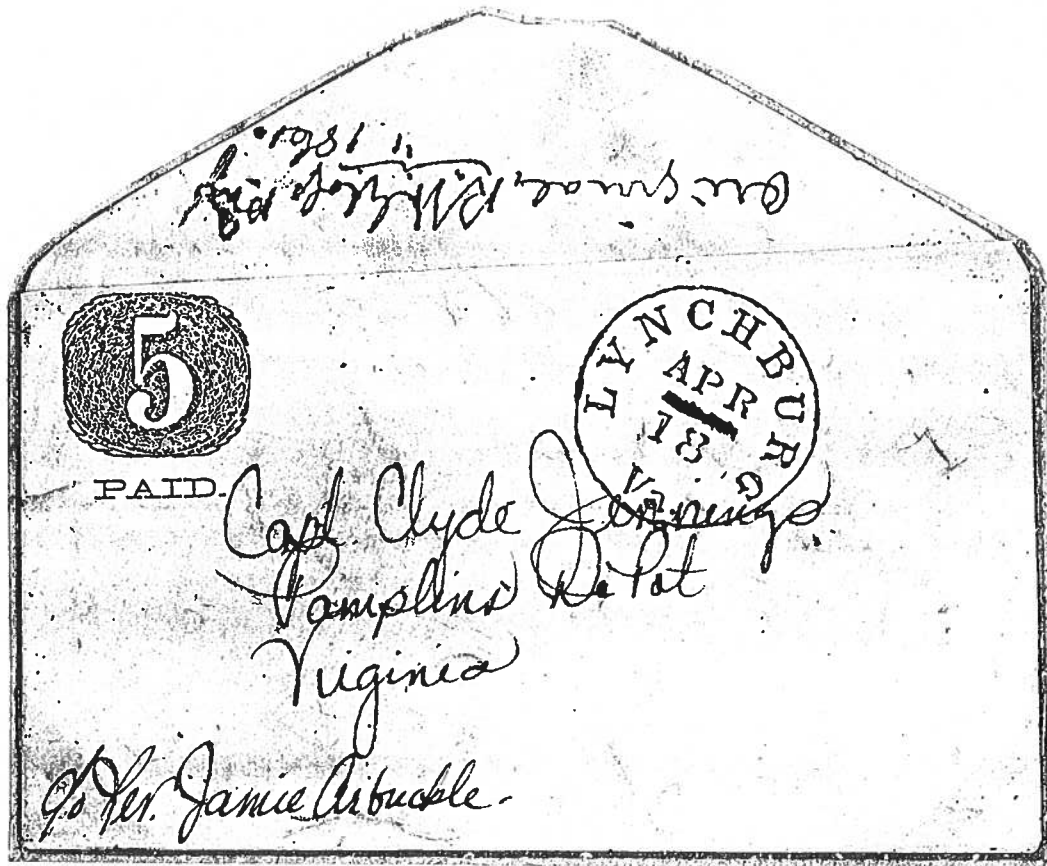 Original,
1861.
5
PAID.
LYNCHBURG
VA.
APR
18
Capt. Clyde Jennings
Pamplins DePot
Virginia
c/o Rev. Jamie Arbuckle.